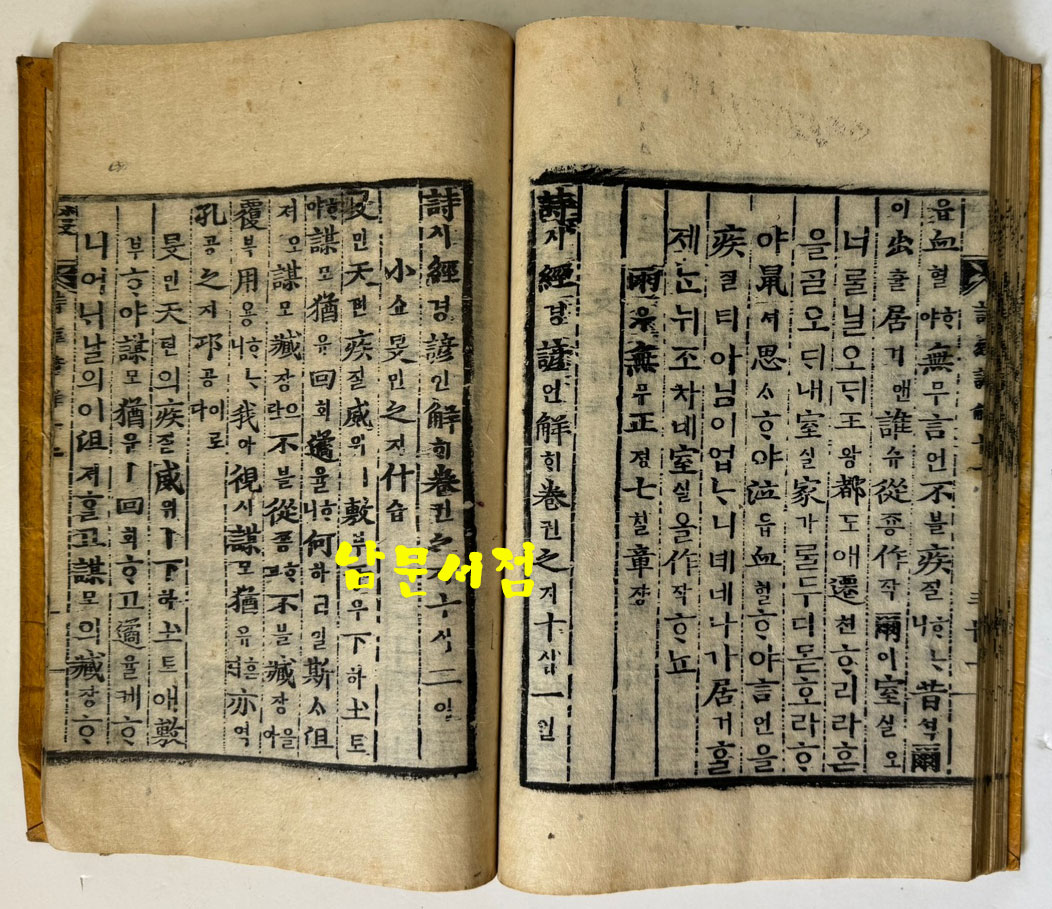 읍血혈ᄒᆞ야無무言언不블疾질ᄒᆞᄂᆞ니昔셕爾
이出츌居거앤誰슈從죵作작爾이室실오
너ᄅᆞᆯ닐오ᄃᆡ王왕都도애遷쳔ᄒᆞ리라ᄒᆞᆫ
을ᄀᆞᆯ오ᄃᆡ내室실家가ᄅᆞᆯ두디몯호라ᄒᆞ
야鼠셔思ᄉᆞᄒᆞ야泣읍血혈ᄒᆞ야言언을
疾질티아님이업ᄂᆞ니녜네나가居거ᄒᆞᆯ
제ᄂᆞᆫ뉘조차네室실을作작ᄒᆞ뇨
雨우無무正졍七칠章쟝
詩시經경諺언解ᄒᆡ卷권之지十십一일
詩시經경諺언解ᄒᆡ卷권之
小쇼旻민之지什습
旻민天텬疾질威위ㅣ敷부우下하土토
ᄒᆞ야謀모猶유回회遹율ᄒᆞ니何하日일斯ᄉᆞ沮
저오謀모臧장으란不블從죵ᄒᆞ고不블臧장을아
覆부用용ᄒᆞᄂᆞ니我아視시謀모猶유ᄒᆞᆫᄃᆡ亦역
孔공之지邛공이로다
旻민天텬의疾질威위ㅣ下하土토애敷
부ᄒᆞ야謀모猶유ㅣ回회ᄒᆞ고遹율케ᄒᆞ
니어ᄂᆡ날의이沮져ᄒᆞᆯ고謀모의臧장ᄒᆞ
남문서점